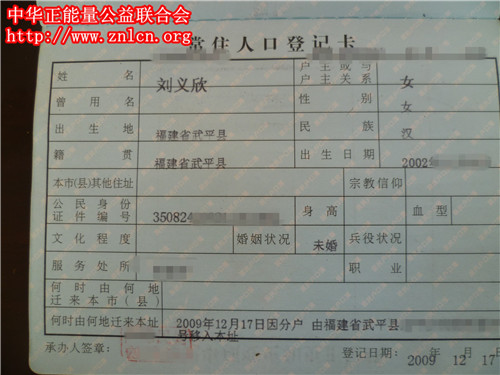 中华正能量公益联合会
www.znlcn.org
常住人口登记卡
姓名 刘义欣 户主或与户主关系 女
曾用名 性别 女
出生地 福建省武平县 民族 汉
籍贯 福建省武平县 出生日期 2002
本市(县)其他住址 宗教信仰
公民身份证件编号 350824 身高 血型
文化程度 婚姻状况 未婚 兵役状况
服务处所 职业
何时由何地迁来本市(县)
何时由何地迁来本址 2009年12月17日因分户 由福建省武平县
号移入本址
承办人签章: 登记日期: 2009 年 12 月 17 日